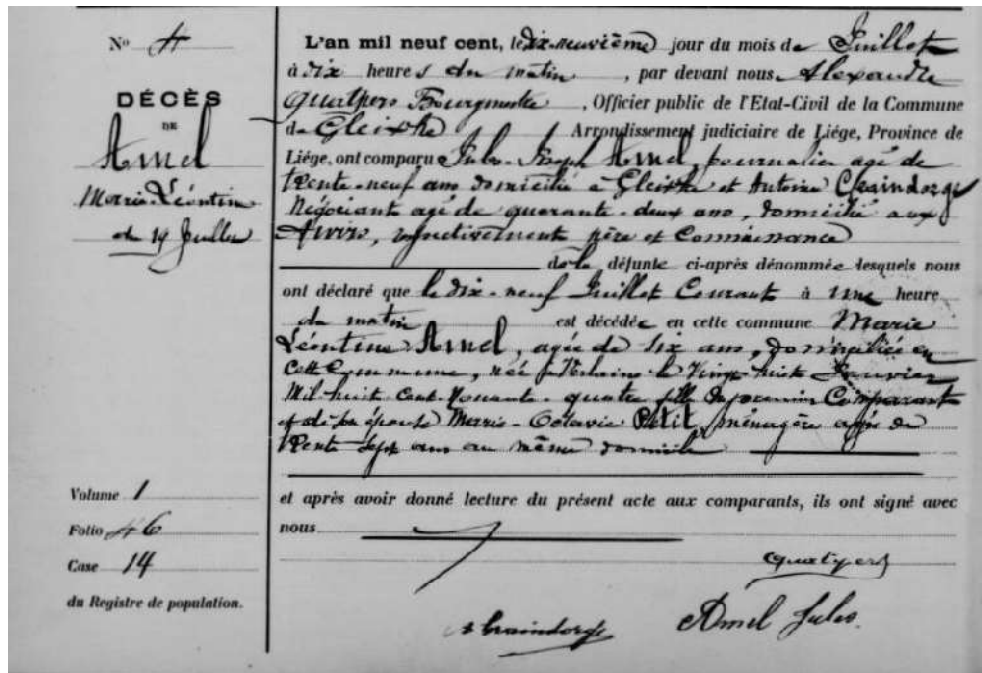 N° 4
DÉCÈS
DE
Amel
Marie-Léontine
du 19 Juillet
Volume 1
Folio 46
Case 14
du Registre de population.
L'an mil neuf cent, le dix-neuvième jour du mois de Juillet
à dix heures du matin, par devant nous Alexandre
Quatpers Bourgmestre, Officier public de l'Etat-Civil de la Commune
de Gleixhe Arrondissement judiciaire de Liége, Province de
Liége, ont comparu Jules-Joseph Amel, journalier agé de
trente-neuf ans domicilié à Gleixhe et Antoine Chaindorge
Négociant agé de quarante-deux ans, domicilié aux
Awirs, respectivement père et Connaissance
de la défunte ci-après dénommée lesquels nous
ont déclaré que le dix-neuf Juillet Courant à une heure
du matin est décédée en cette commune Marie
Léontine Amel, agée de six ans, domiciliée en
cette Commune, née à le Vingt-huit Janvier
Mil huit Cent Nonante-quatre fille du premier Comparant
et de son épouse Marie-Octavie Petit, ménagère agée de
trente-sept ans au même domicile
et après avoir donné lecture du présent acte aux comparants, ils ont signé avec
nous
Quatpers
Amel Jules.